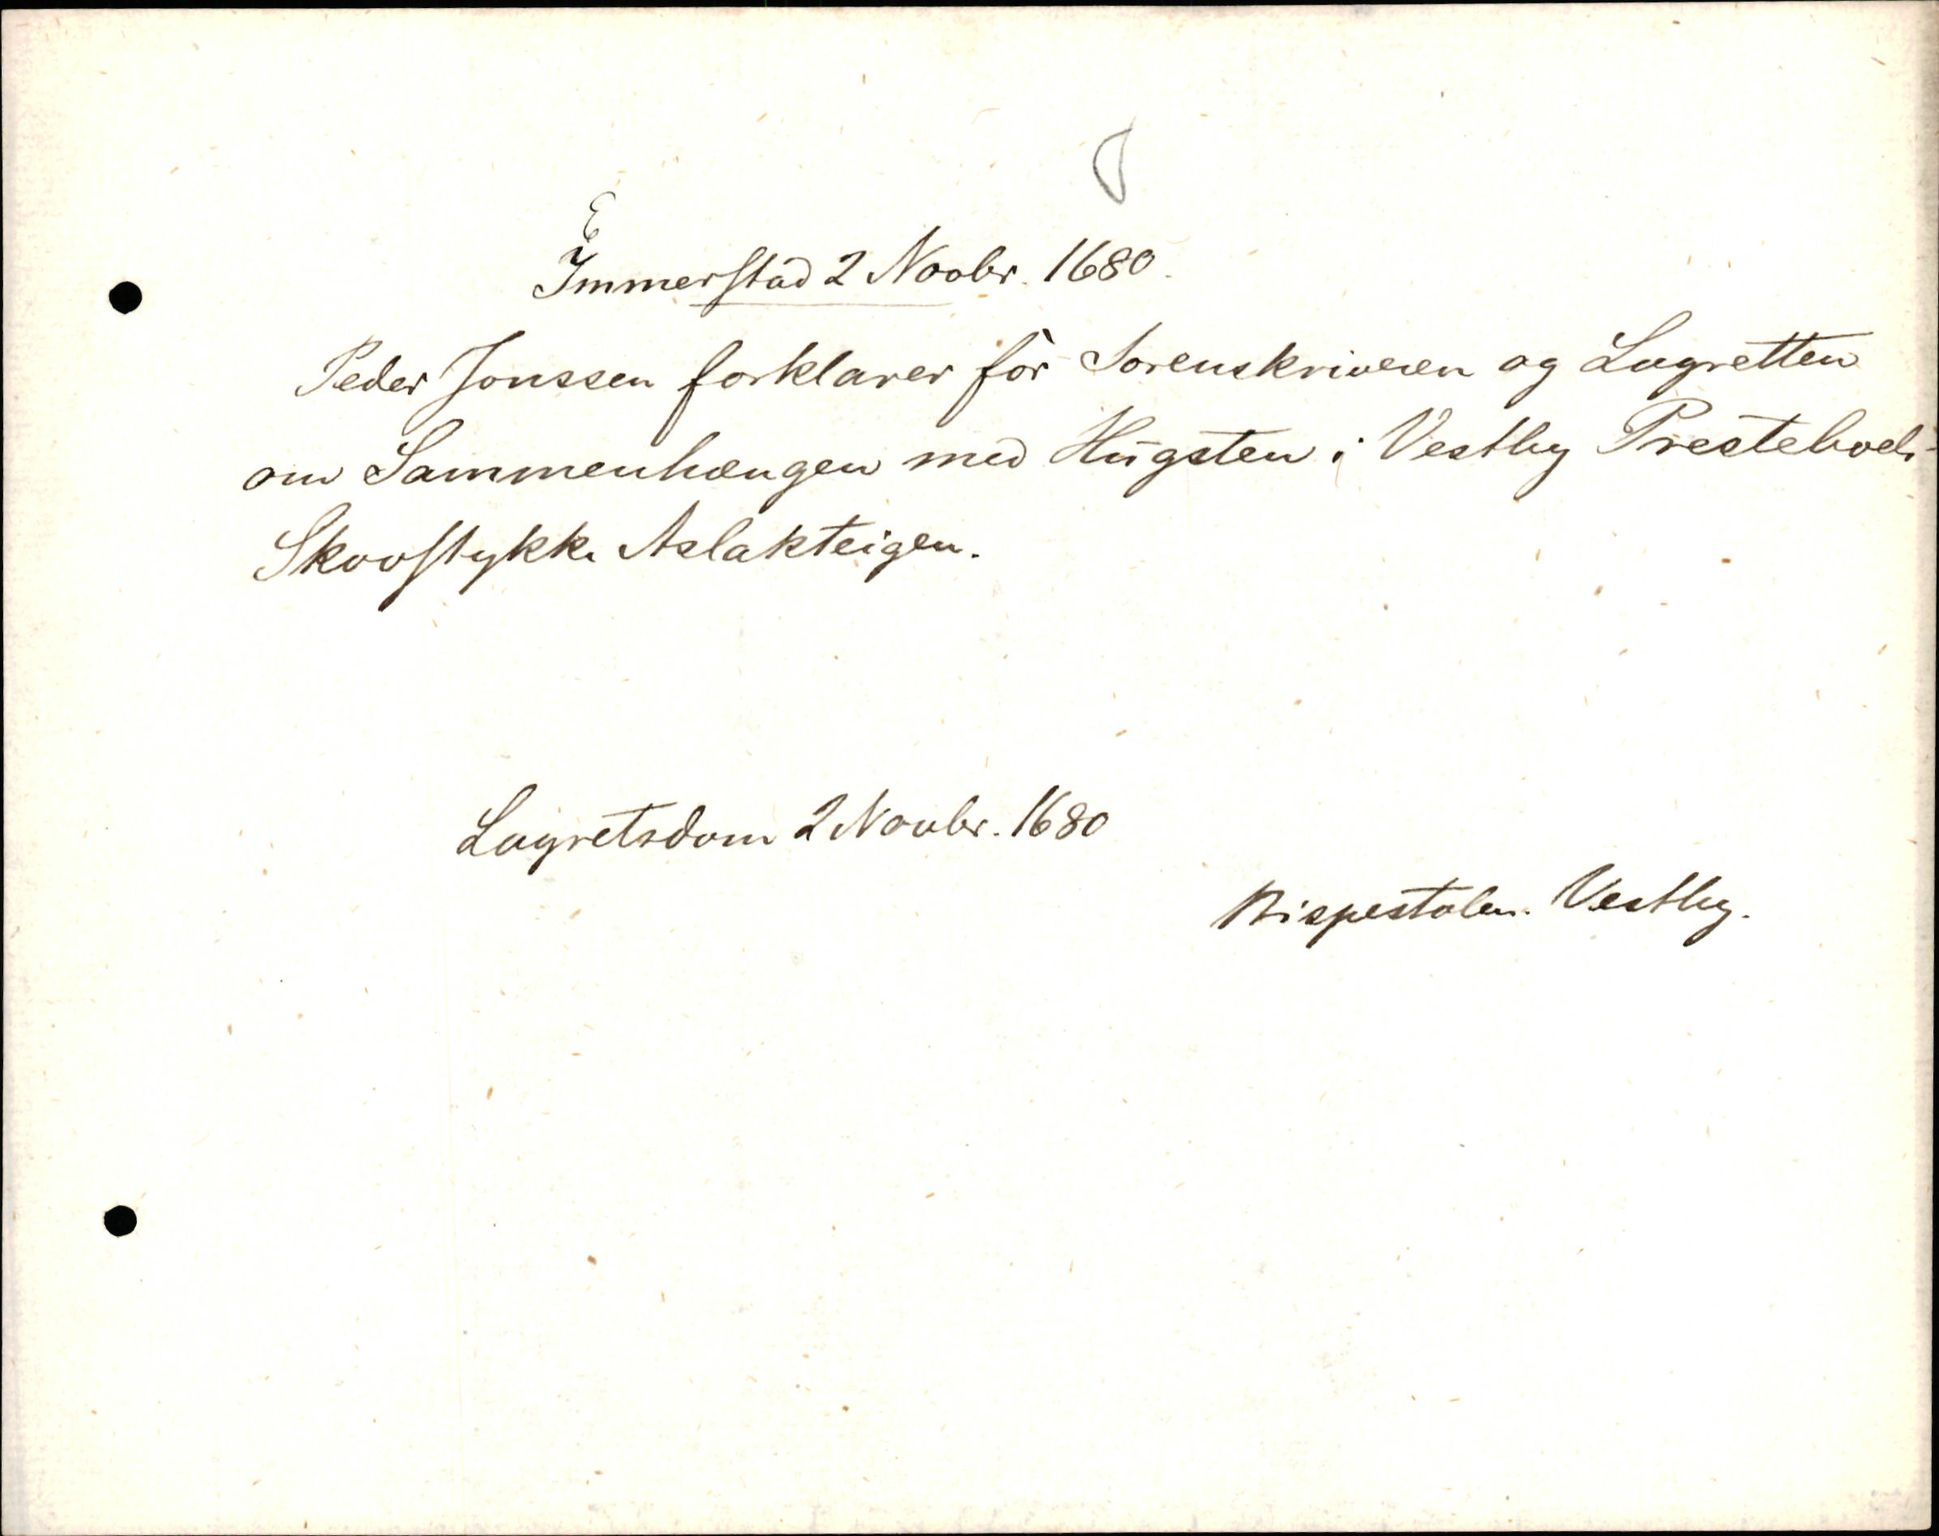 E
Immerstad 2 Novbr. 1680.
Peder Jonssen forklarer för Sorenskriveren og Lagretten
om Sammenhængen med Hugsten i Vestby Presteboels
Skovstykke Aslakteigen.
Lagretsdom 2 Novbr. 1680
Bispestolen. Vestby.